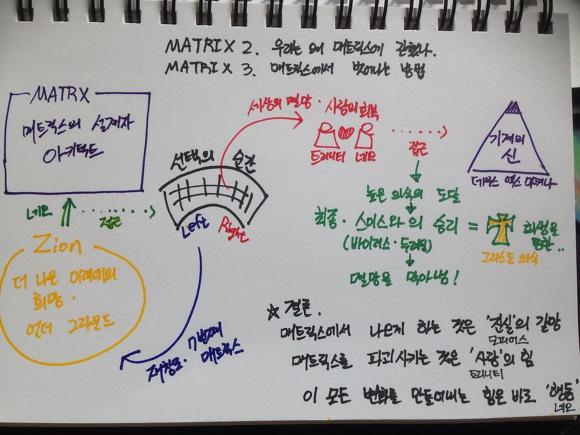 MATRIX 2. 우리는 왜 매트릭스에 갇혔나.
MATRIX 3. 매트릭스에서 벗어나는 방법
MATRX
매트릭스의 설계자
아키텍트
네오
접근
Zion
더 나은 미래에의
희망.
언더 그라운드
선택의 순간
Left
Right
재창조. 7번째
매트릭스
세상의 멸망. 사랑의 회복
트리니티
네오
접근
기계의
신
데우스 엑스 마키나
높은 의식의 도달
최종. 스미스와의 승리
(바이러스. 두려움)
멸망을 막아냄!
=
희생을
통한..
그리스도 의식
☆ 결론.
매트릭스에서 나오게 하는 것은 '진실'의 갈망
모피어스
매트릭스를 파괴시키는 것은 '사랑'의 힘
트리니티
이 모든 변화를 만들어내는 힘은 바로 '행동'
네오